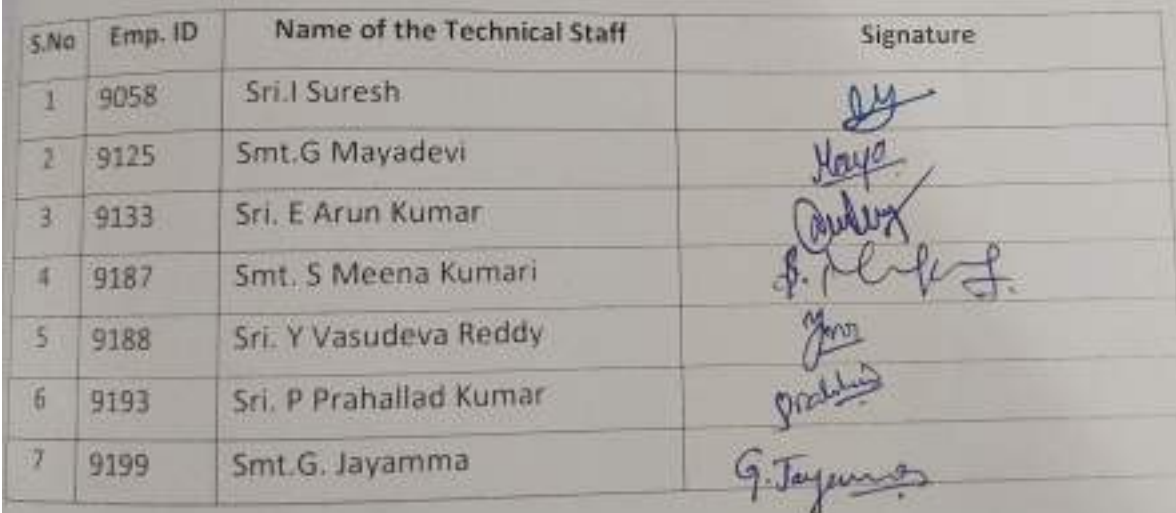 S.No Emp. ID Name of the Technical Staff Signature
1 9058 Sri.I Suresh
2 9125 Smt.G Mayadevi Maya
3 9133 Sri. E Arun Kumar
4 9187 Smt. S Meena Kumari
5 9188 Sri. Y Vasudeva Reddy
6 9193 Sri. P Prahallad Kumar
7 9199 Smt.G. Jayamma G. Jayamma